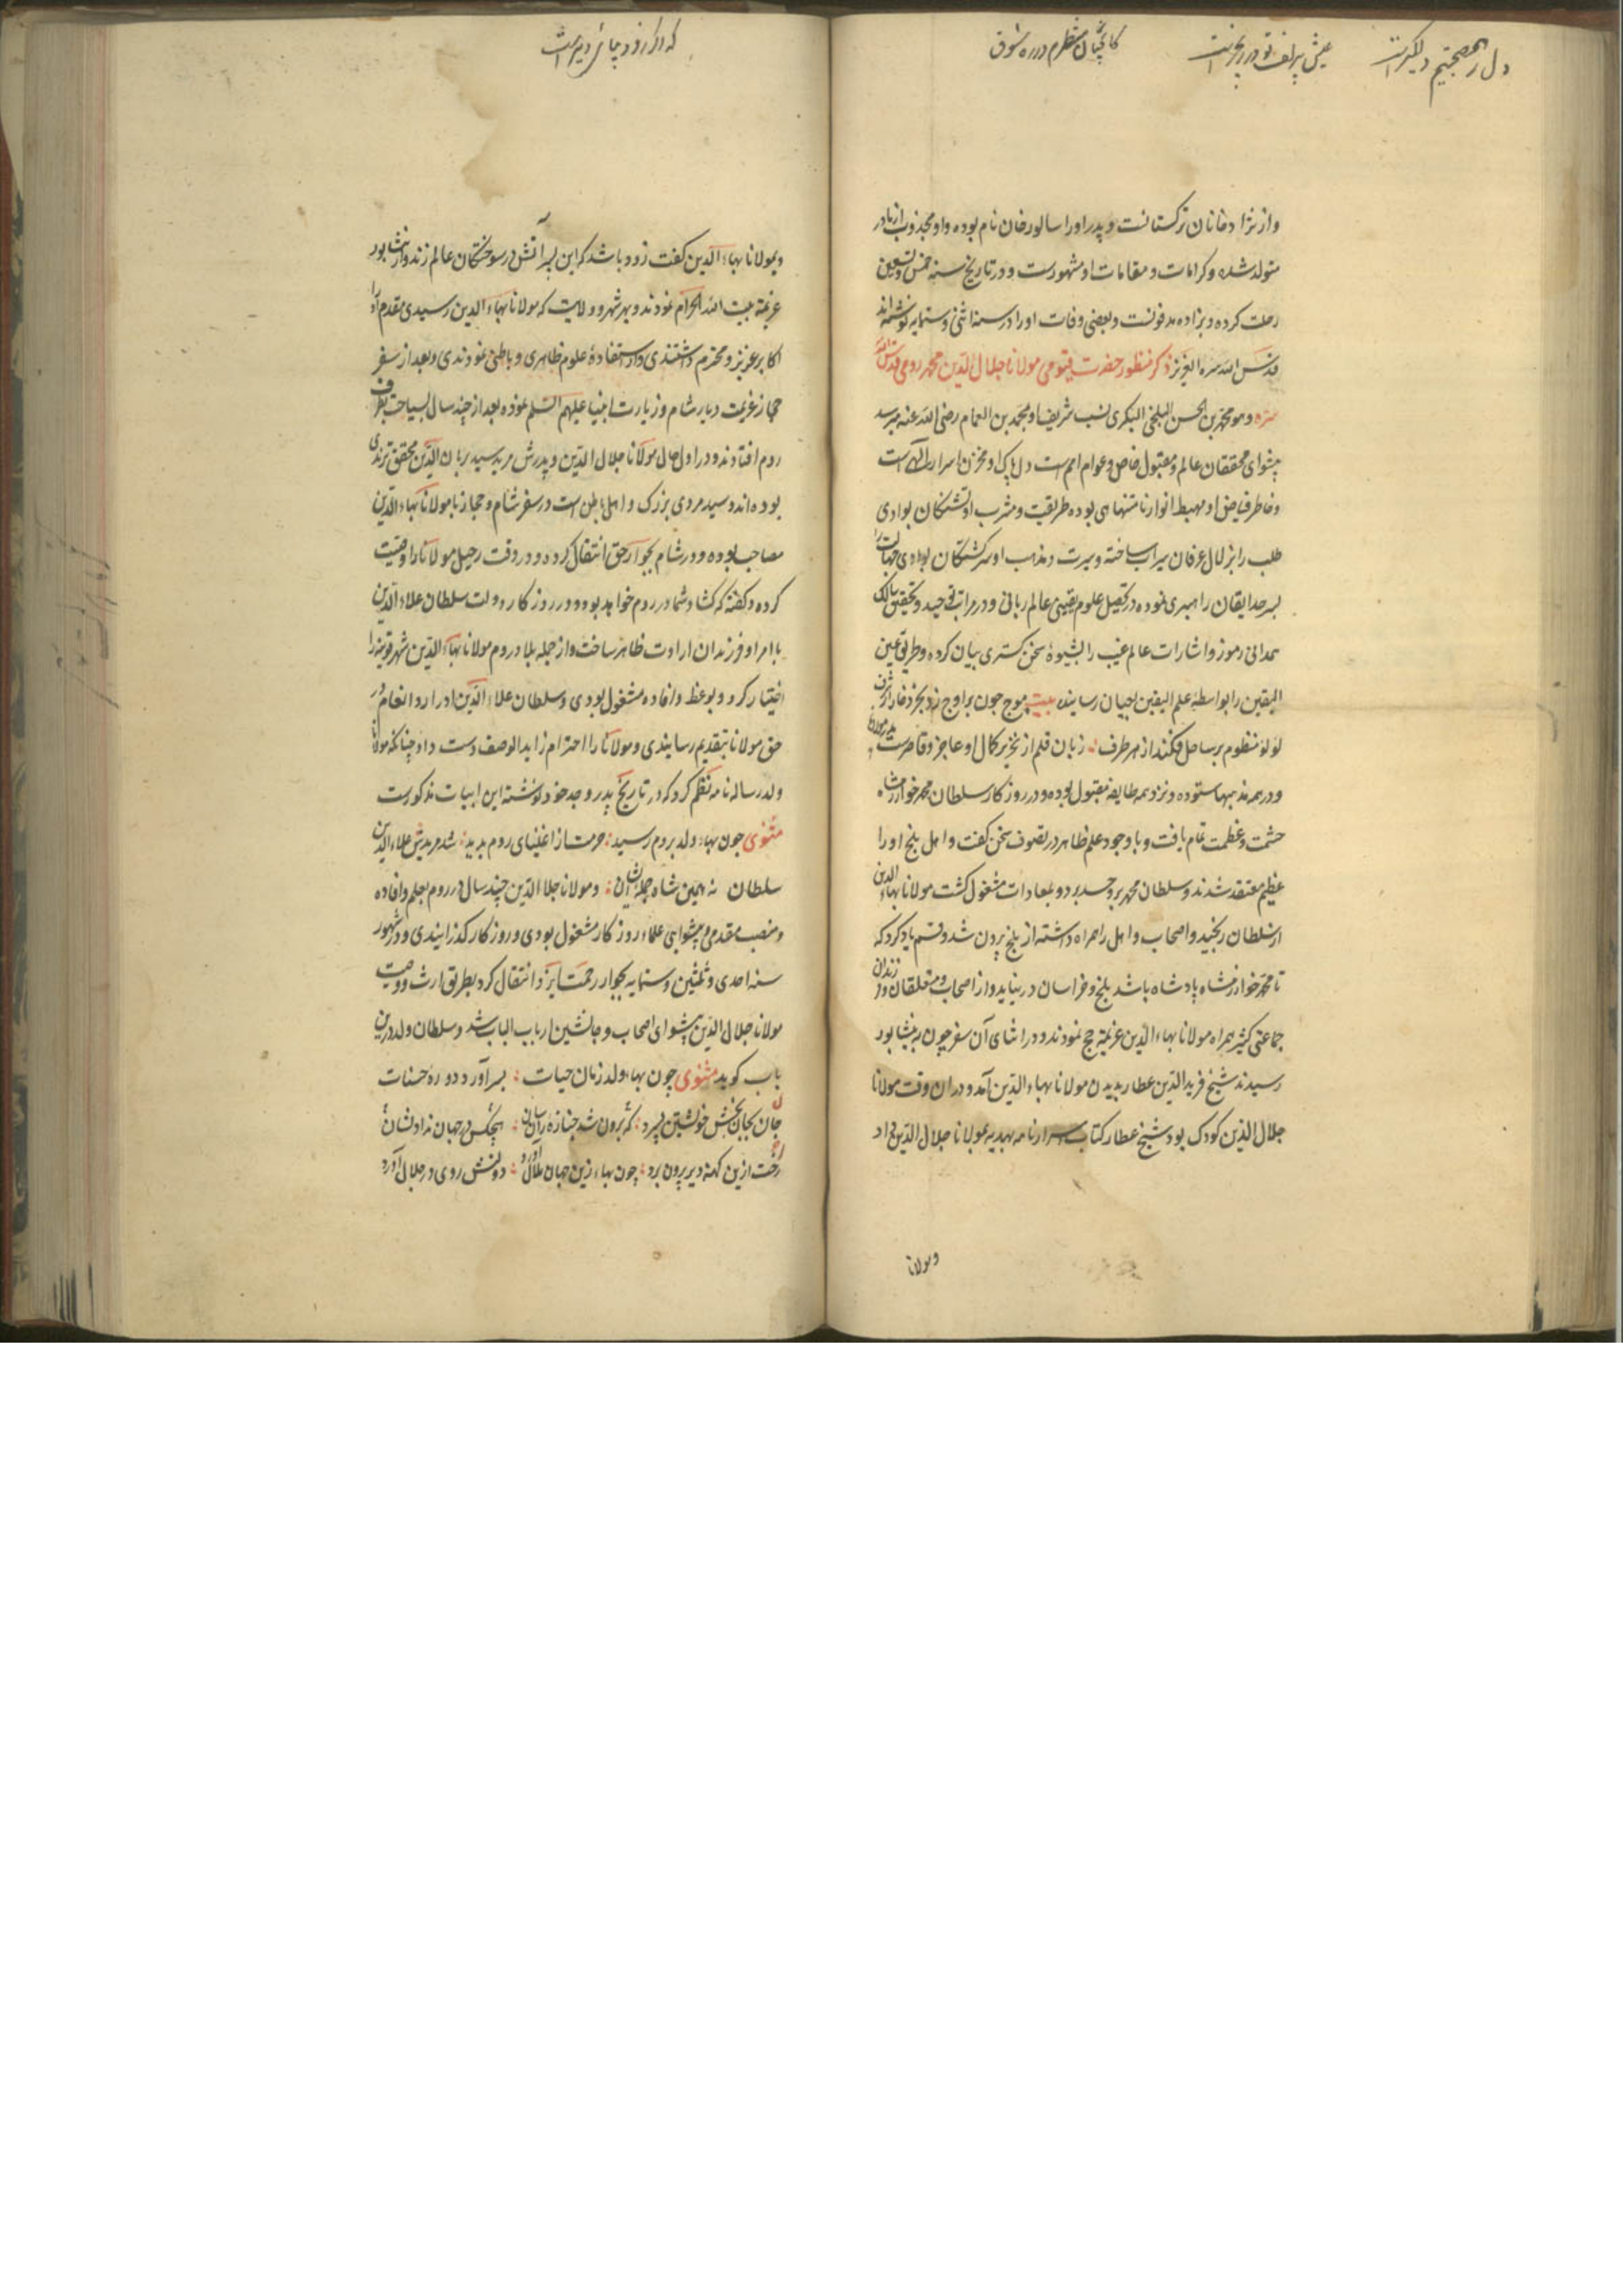 واز نژاد خانان ترکستانست و پدر او را سالور خان نام بوده و او مجذوب از مادر
متولد شده و کرامات و مقامات او مشهورست و در تاریخ سنه خمس و تسعین
رحلت کرده و بزاده مدفونست و بعضی وفات او را در سنه اثنی و ستمایه نوشته‌اند
قدس الله سره العزیز ذکر منظور حضرت قیومی مولانا جلال الدین محمد رومی قدس الله
سره و هو محمد بن الحسن البلخی البکری نسب شریف او بمحمد بن رضی الله عنه میرسد
پیشوای محققان عالم و مقبول خاص و عوام امم است دل پاک او مخزن اسرار الهی است
و خاطر فیاض او مهبط انوار نامتنهاهی بوده طریقت و مشرب او تشنگان بوادی
طلب را بزلال عرفان سیراب ساخته و سیرت و مذهب او سرکشتکان بوادی جهالت را
بسرحد ایقان راهبری نموده در تحصیل علوم یقینی عالم ربانی و در مراتب توحید و تحقیق سالک
صمدانی رموز و اشارات عالم غیب را بشیوه سخن کستری بیان کرده و طریق عین
الیقین را بواسطه علم الیقین بعیان رسانیده بیت موج چون بر اوج زد بحر ذخار از شرف
لؤلؤ منظوم بر ساحل فکند از هر طرف زبان قلم از تحریر کمال او عاجز و قاصرست
و در همه مذهبها ستوده و نزد همه طایفه مقبول بوده و در روزکار سلطان محمد خوارزمشاه
حشمت و عظمت تمام یافت و با وجود علم ظاهر در تصوف سخن کفت و اهل بلخ او را
عظیم معتقد شدند و سلطان محمد برو حسد برد و بمعادات مشغول کشت مولانا بهاء الدین
از سلطان رنجید و اصحاب و اهل را همراه داشته از بلخ بیرون شد و قسم یاد کرد که
تا محمد خوارزمشاه پادشاه باشد ببلخ و خراسان در نیاید و از اصحاب و متعلقان و فرزندان
جماعتی کثیر همراه مولانا بهاء الدین عزیمة حج نمودند و در اثنای آن سفر چون به نیشابور
رسیدند شیخ فرید الدین عطار بدیدن مولانا بهاء الدین آمد و در آن وقت مولانا
جلال الدین کودک بود شیخ عطار کتاب اسرارنامه بهدیه بمولانا جلال الدین داد
ومولانا
وبمولانا بهاء الدین کفت زود باشد که این پسر آتش در سوختکان عالم زند و از نیشابور
عزیمة بیت الله الحرام نمودند و بهر شهر و ولایت که مولانا بهاء الدین رسیدی مقدم او را
اکابر عزیز و محترم داشتندی و استفادهٔ علوم ظاهری و باطنی نمودندی و بعد از سفر
حجاز عزیمت دیار شام و زیارت انبیا علیهم السلام نموده بعد از چند سال سیاحت بطرف
روم افتادند و در اول حال مولانا جلال الدین و پدرش مرید سید برهان الدین محقق ترمذی
بوده‌اند و سید مردی بزرک و اهل باطن است در سفر شام و حجاز با مولانا بهاء الدین
مصاحب بوده و در شام بجوار حق انتقال کرده و در وقت رحیل مولانا را وصیت
کرده و کفته که کشاد شما در روم خواهد بود و در روزکار دولت سلطان علاء الدین
با امرا و فرزندان ارادت ظاهر ساخت و از جمله بلاد روم مولانا بهاء الدین شهر قونیه را
اختیار کرد و بوعظ و افاده مشغول بودی و سلطان علاء الدین ادرار و انعام در
حق مولانا بتقدیم رسانیدی و مولانا را احترام زاید الوصف دست داد چنانکه مولانا
ولد رساله نامه نظم کرد که در تاریخ پدر و جد خود نوشته این ابیات مذکورست
مثنوی چون بهاء ولد بروم رسید حرمت از اغنیای روم بدید شد مریدش علاء الدین
سلطان نه همین شاه جمله شان و مولانا جلال الدین چند سال در روم بعلم و افاده
و منصب مقدمی و پیشوایی علماء روزکار مشغول بودی و روزکار کذرانیدی و در شهور
سنه احدی و ثلثین و ستمایه بجوار رحمت ایزد انتقال کرد بطریق ارث و وصیت
مولانا جلال الدین پیشوای اصحاب و جانشین ارباب الباب شد و سلطان ولد درین
باب کوید مثنوی چون بهاء ولد زمان حیات بسر آورد در ره حسنات
جان بجان بخش خویشتن بسپرد هیچکس در جهان نداد نشان
رخت ازین کهنه دیر بیرون برد چون بهاء زین جهان ملال آورد دولتش روی در جلال آورد